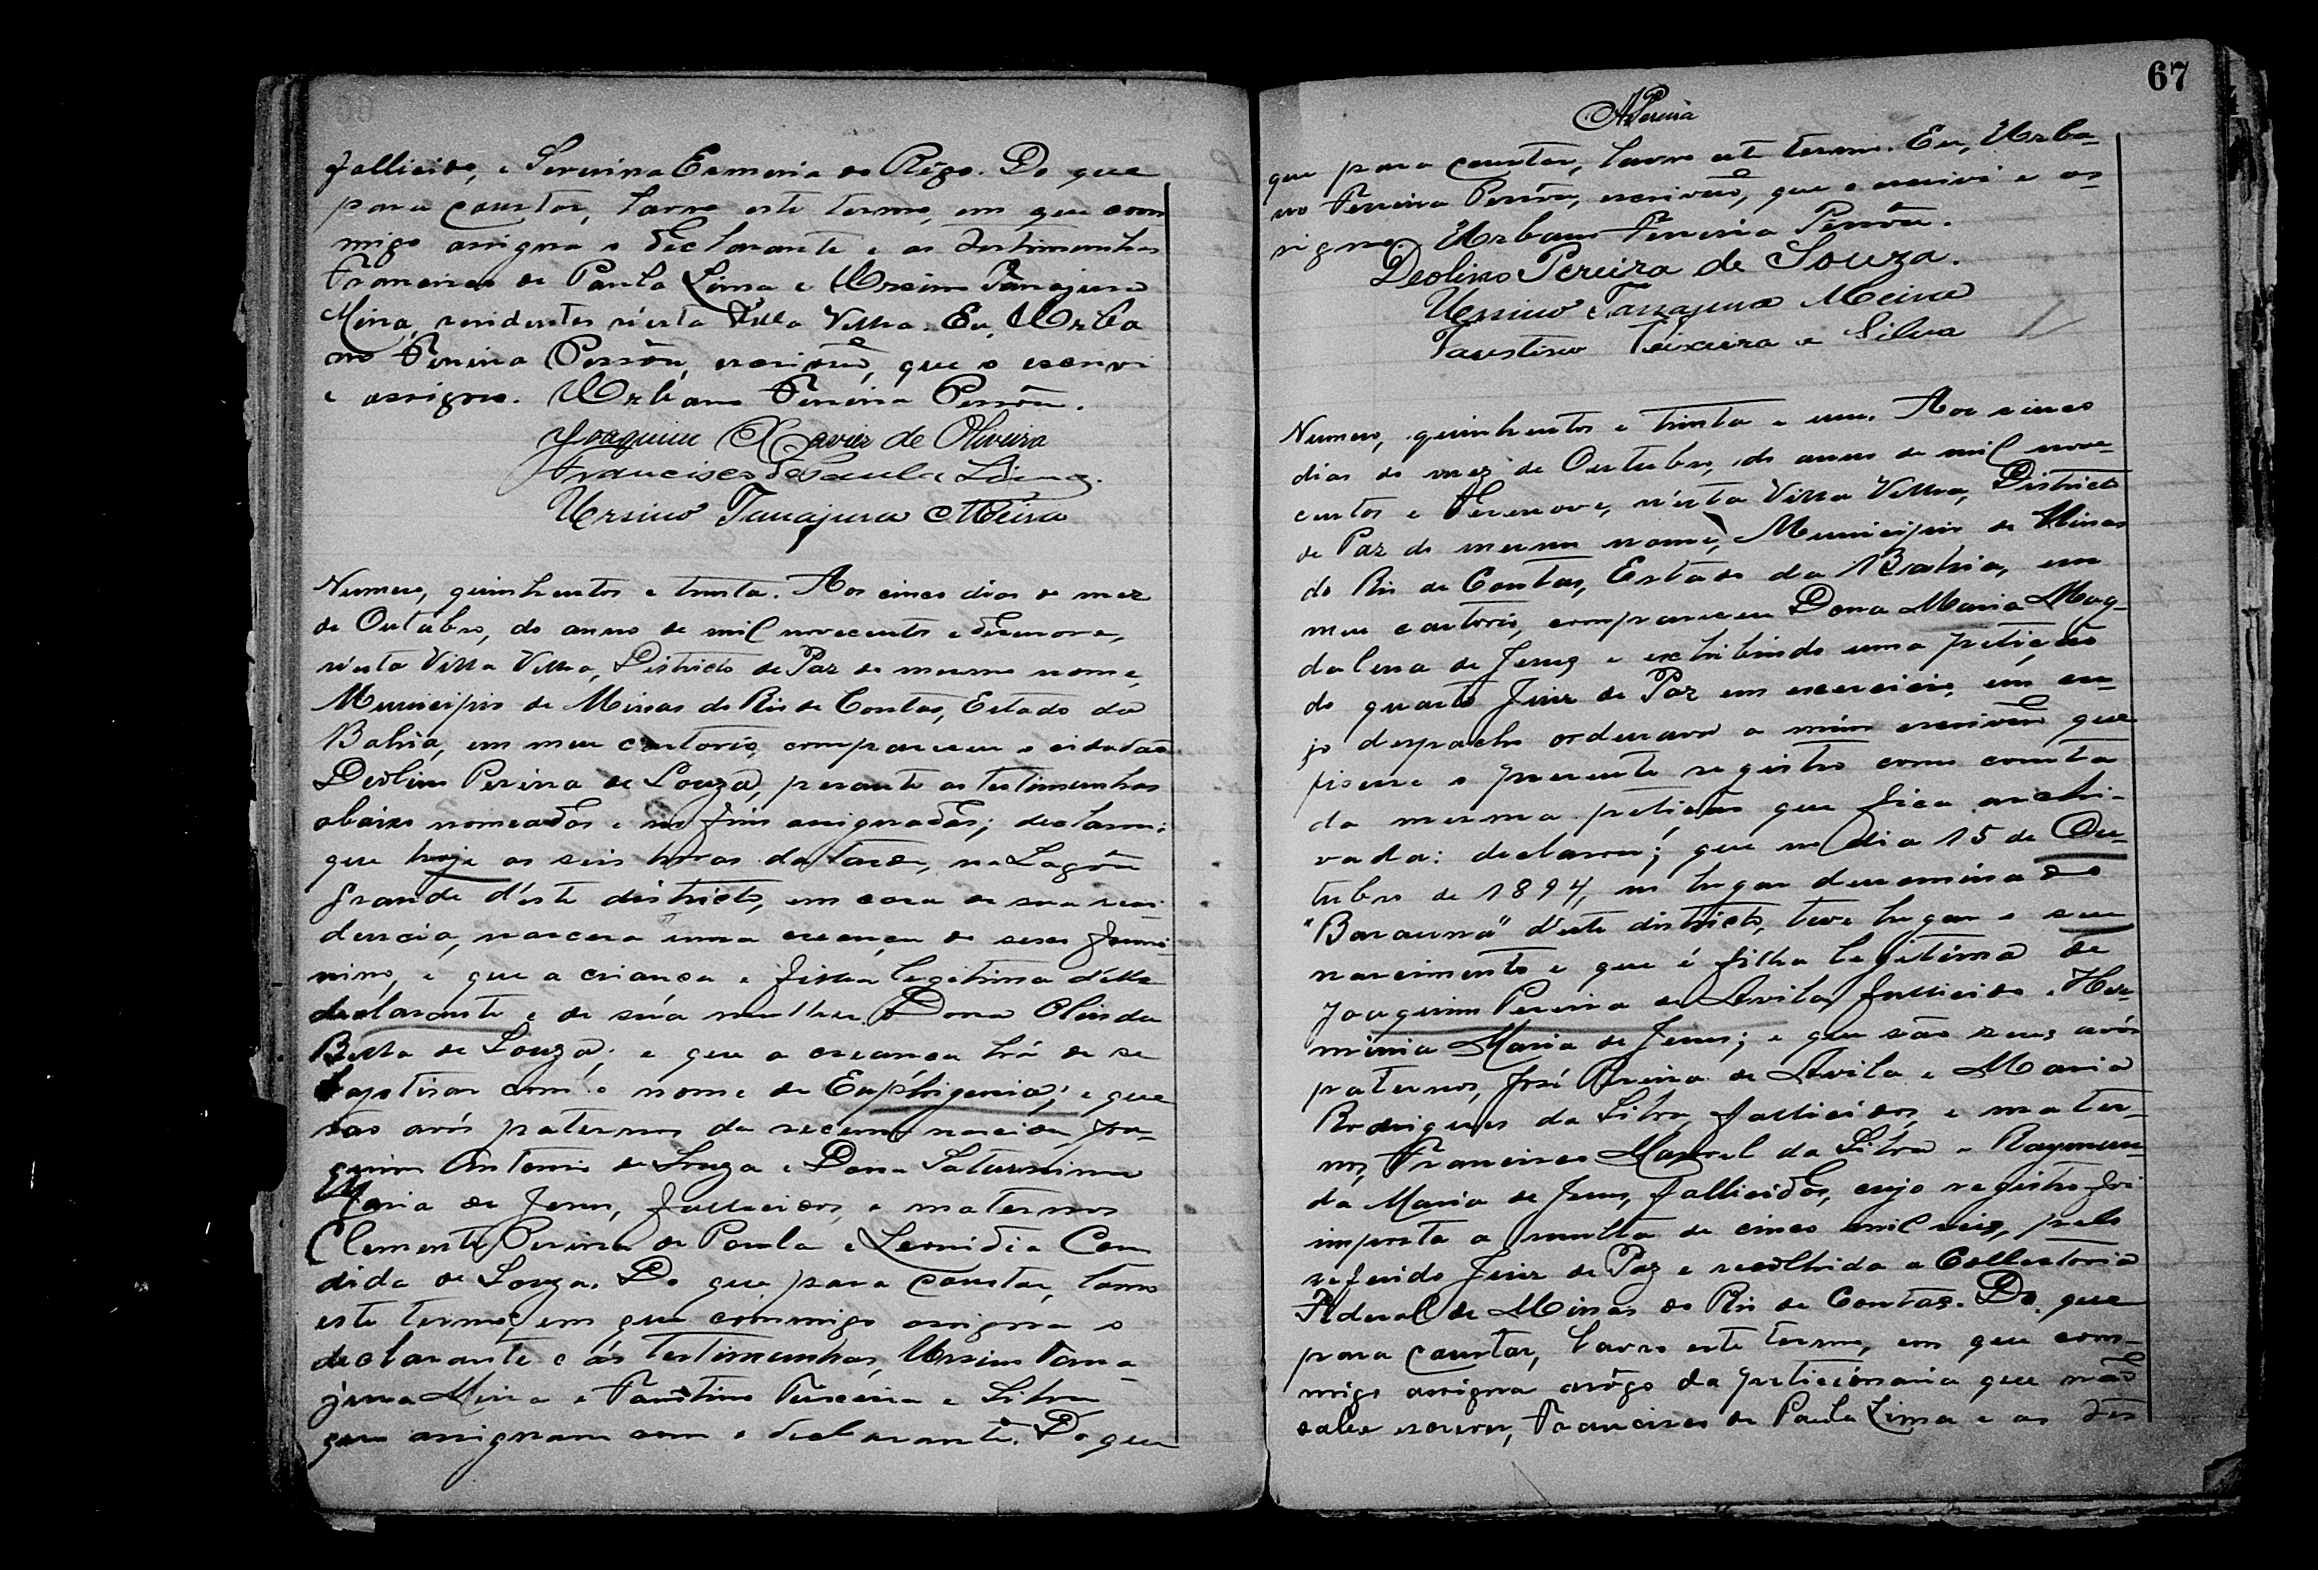 fallicido, e Severina Esmeria do Rêgo. Do que
para constar, lavro este termo, em que com
migo assigna o declarante e as testimunhas
Francisco de Paula Lima e Ursino Tanajura
Meira, residentes n'esta Villa Velha. Eu, Urba
no Ferreira Pessôa, escrivão, que o escrevi
e assigno. Urbano Ferreira Pessôa.
Joaquim Xavier de Oliveira
Francisco de Paula Lima.
Ursino Tanajura Meira
Numero, quinhentos e trinta. Aos cinco dias do mez
de Outubro, do anno de mil novecentos e desenove,
n'esta Villa Velha, Districto de Paz do mesmo nome,
Municipio de Minas do Rio de Contas, Estado da
Bahia, em meu cartorio, compareceu o cidadão
Deolino Pereira de Souza, perante as testimunhas
abaixo nomeadas e no fim assignadas; declarou:
que hoje as seis horas da tarde, na Lagôa
grande d'este districto, em casa de sua resi-
dencia, nascera uma creança do sexo femi-
nino, e que a criança e filha legitima d'elle
declarante e de súa mulher Dona Olinda
Bella de Souza; e que a creança há de se
baptisar com o nome de Euphigenia; e que
são avós paternos da recem nascida, Joa-
quim Antonio de Souza e Dona Saturnina
Maria de Jesus, fallicidos, e maternos
Clemente Pereira de Paula e Leonidia Can
dida de Souza. Do que para constar, lavro
este termo, em que commigo assigna o
declarante e ás testimunhas, Ursino Tana-
jura Meira e Faustino Teixeira e Silva
que assignam com o declarante. Do que
67
APereira
que para constar, lavro este termo. Eu, Urba-
no Ferreira Pessôa, escrivão, que o escrevi e as-
signo. Urbano Ferreira Pessôa.
Deolino Pereira de Souza.
Ursino Tanajura Meira
Faustino Teixeira e Silva
Numero, quinhentos e trinta e um. Aos cinco
dias do mez de Outubro, do anno de mil nove-
centos e desenove, n'esta Villa Velha, Districto
de Paz do mesmo nome, Municipio de Minas
do Rio de Contas, Estado da Bahia, em
meu cartorio, compareceu Dona Maria Mag-
dalena de Jesus e exhibindo uma petição
do quarto Juiz de Paz em exercicio, em cu-
jo despacho ordenava a mim escrivão que
fisesse o presente registro como consta
da mesma petição que fica archi-
vada: declarou; que no dia 15 de Ou-
tubro de 1894, no lugar denominado
"Barauna" d'este districto, teve lugar o seu
nascimento e que é filha legitima de
Joaquim Pereira de Avila, fallicido e Her-
minia Maria de Jesus; e que são seus avós
paternos, José Pereira de Avila e Maria
Rodrigues da Silva, fallicidos, e mater-
nos, Francisco Manoel da Silva e Raymun-
da Maria de Jesus, fallicidos, cujo registro foi
imposta a multa de cinco mil reis, pelo
referido Juiz de Paz e recolhida a Collectoria
Federal de Minas do Rio de Contas. Do que
para constar, lavro este termo, em que com-
migo assigna arôgo da peticionaria que não
sabe escrever, Francisco de Paula Lima e as tes